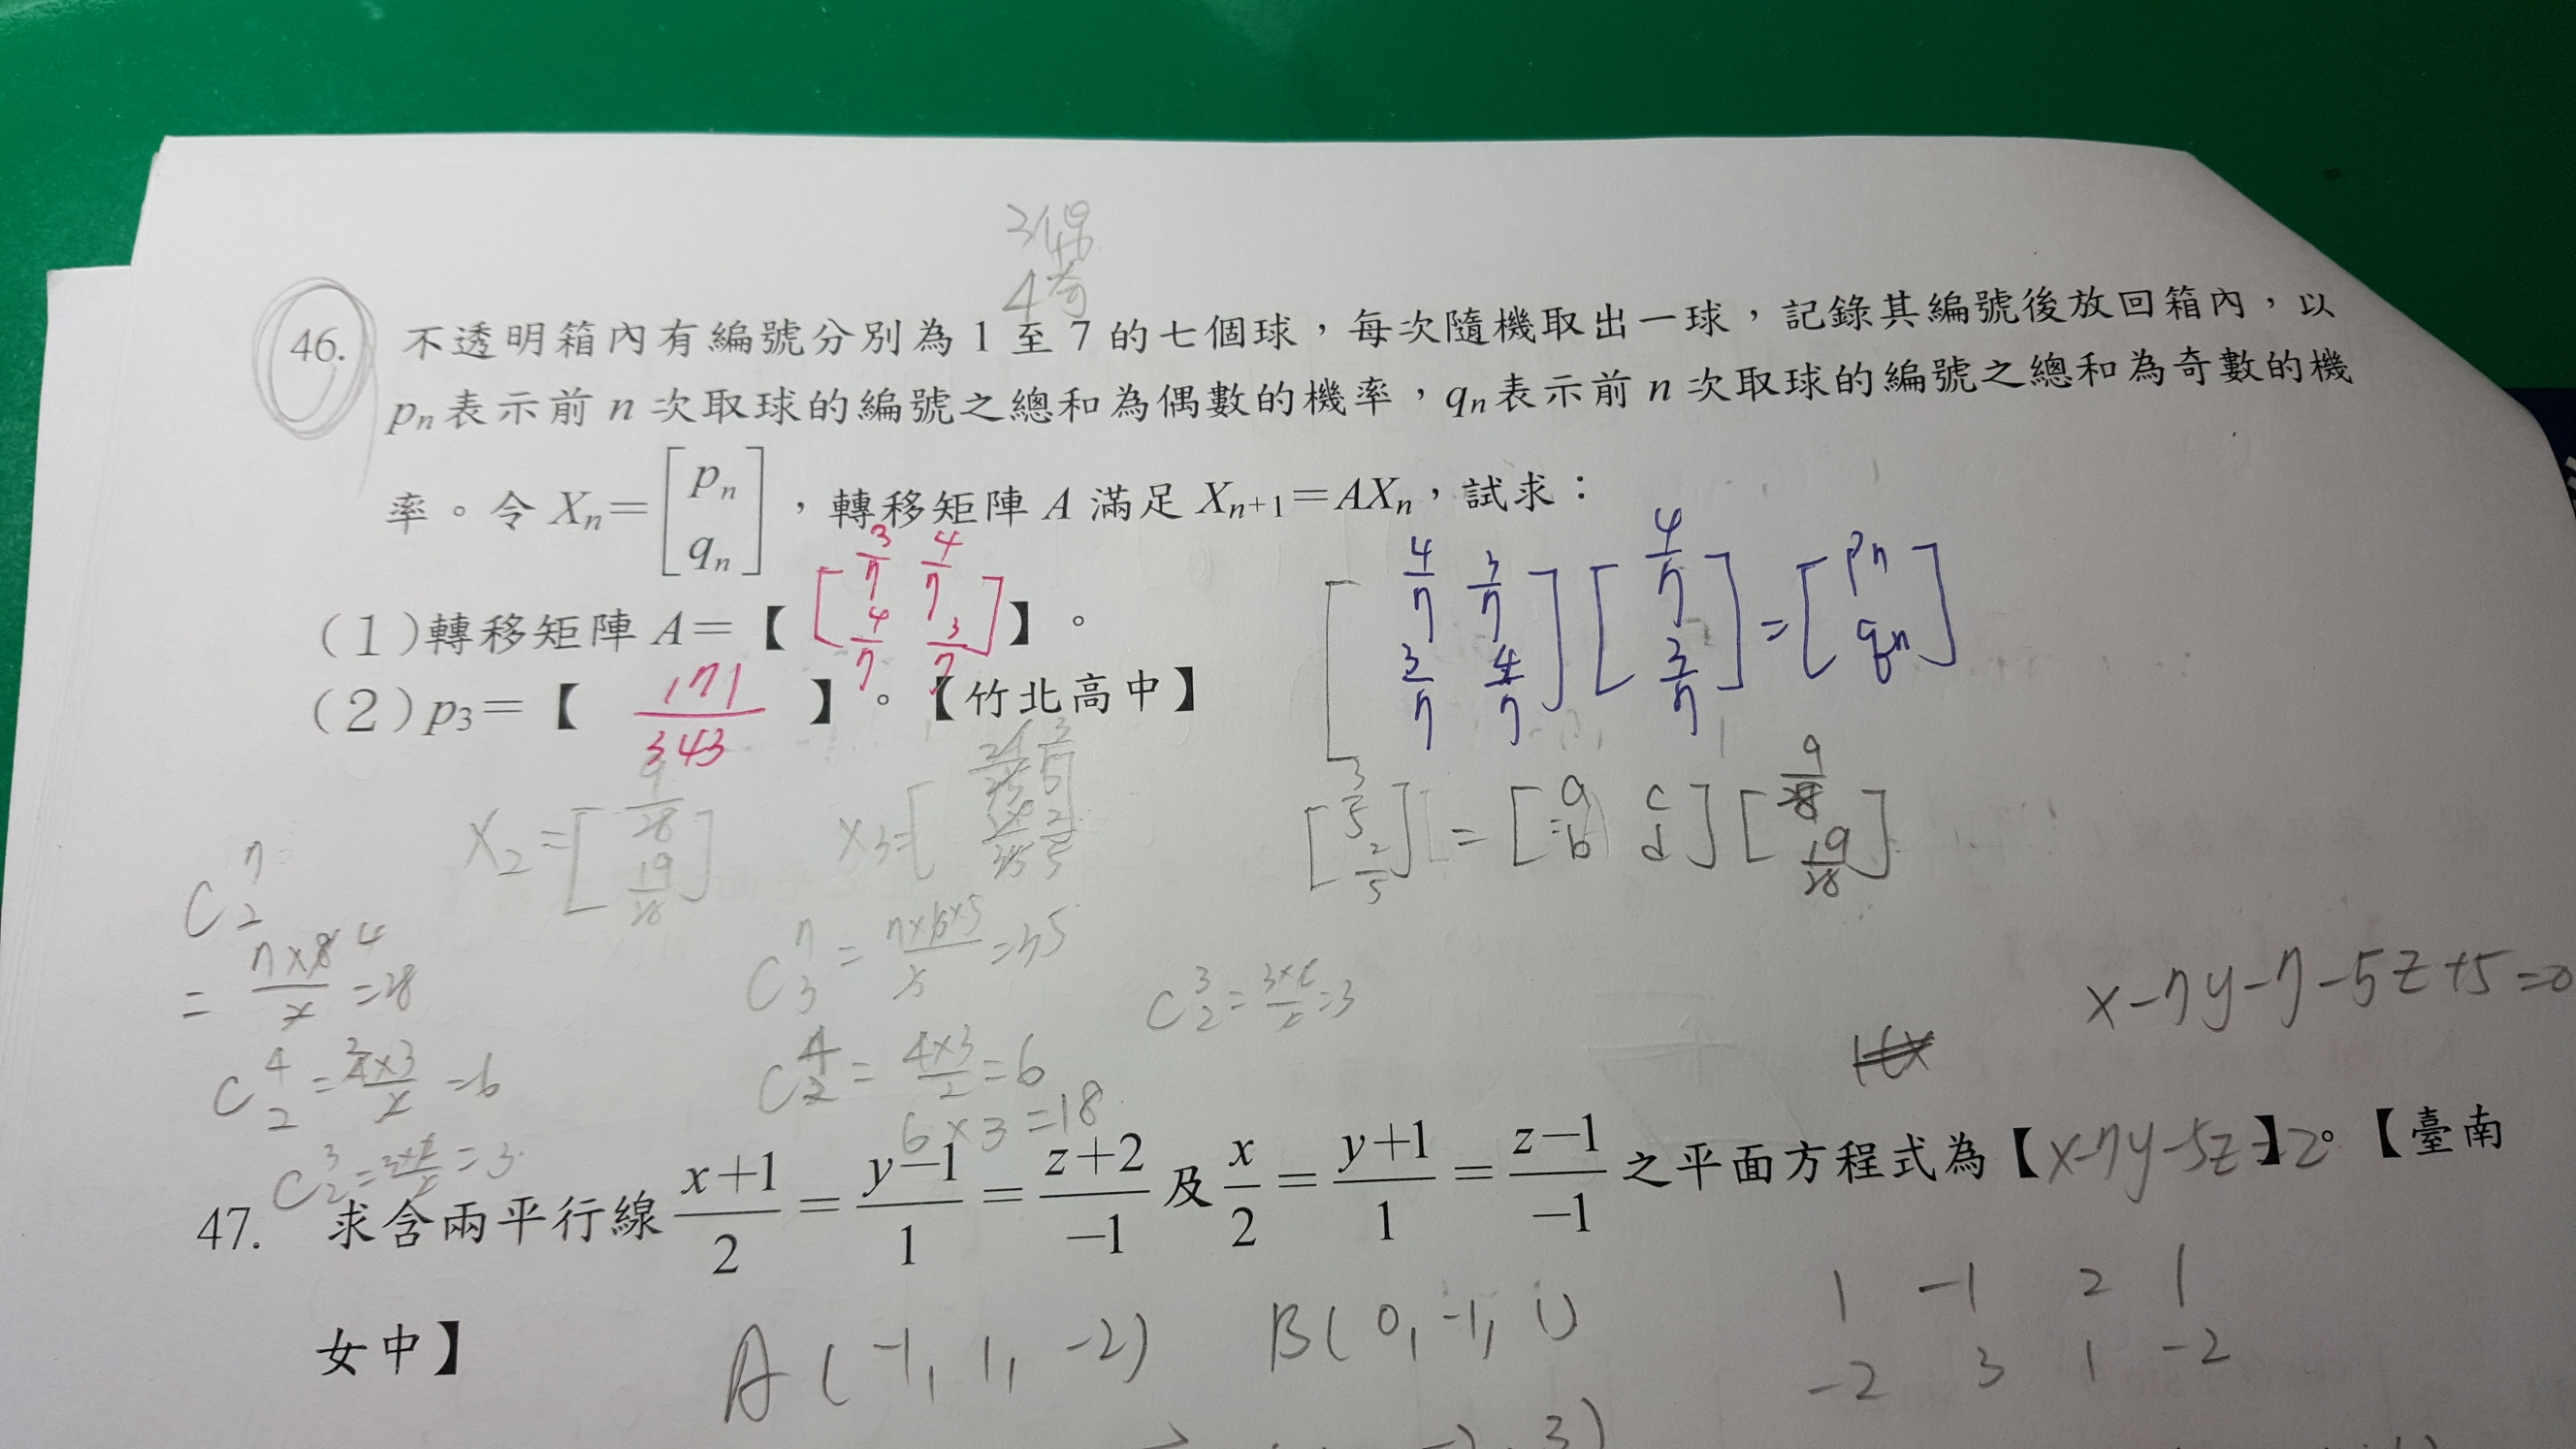 3個偶
4奇
46. 不透明箱內有編號分別為 1 至 7 的七個球，每次隨機取出一球，記錄其編號後放回箱內，以
pn表示前 n 次取球的編號之總和為偶數的機率，qn表示前 n 次取球的編號之總和為奇數的機
率。令 Xn=[pn qn]，轉移矩陣 A 滿足 Xn+1=AXn，試求：
(1)轉移矩陣 A=【[3/7 4/7 4/7 3/7]】。
[4/7 3/7 3/7 4/7][4/7 3/7]=[pn qn]
(2)p3=【171/343】。【竹北高中】
X2=[9/28 19/28]
X3=[
[3/5 2/5]=[a c b d][9/28 19/28]
C 7 2
= 7×8 4/2 =28
C 7 3 = 7×6×5/ =35
C 3 2 = 3×2/2 =3
x-7y-7-5z+5=0
C 4 2 = 4×3/2 =6
C 4 2 = 4×3/2 =6
6×3=18
C 3 2 = 3×2/2 =3
47. 求含兩平行線 x+1/2 = y-1/1 = z+2/-1 及 x/2 = y+1/1 = z-1/-1 之平面方程式為【x-7y-5z=2】。【臺南
女中】
A(-1, 1, -2) B(0, -1, 1)
1 -1 2 1
-2 3 1 -2